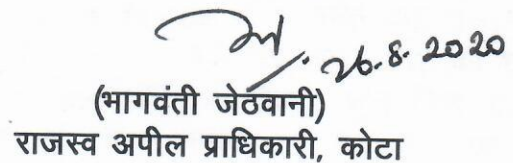 26.8.2020
(भागवंती जेठवानी)
राजस्व अपील प्राधिकारी, कोटा